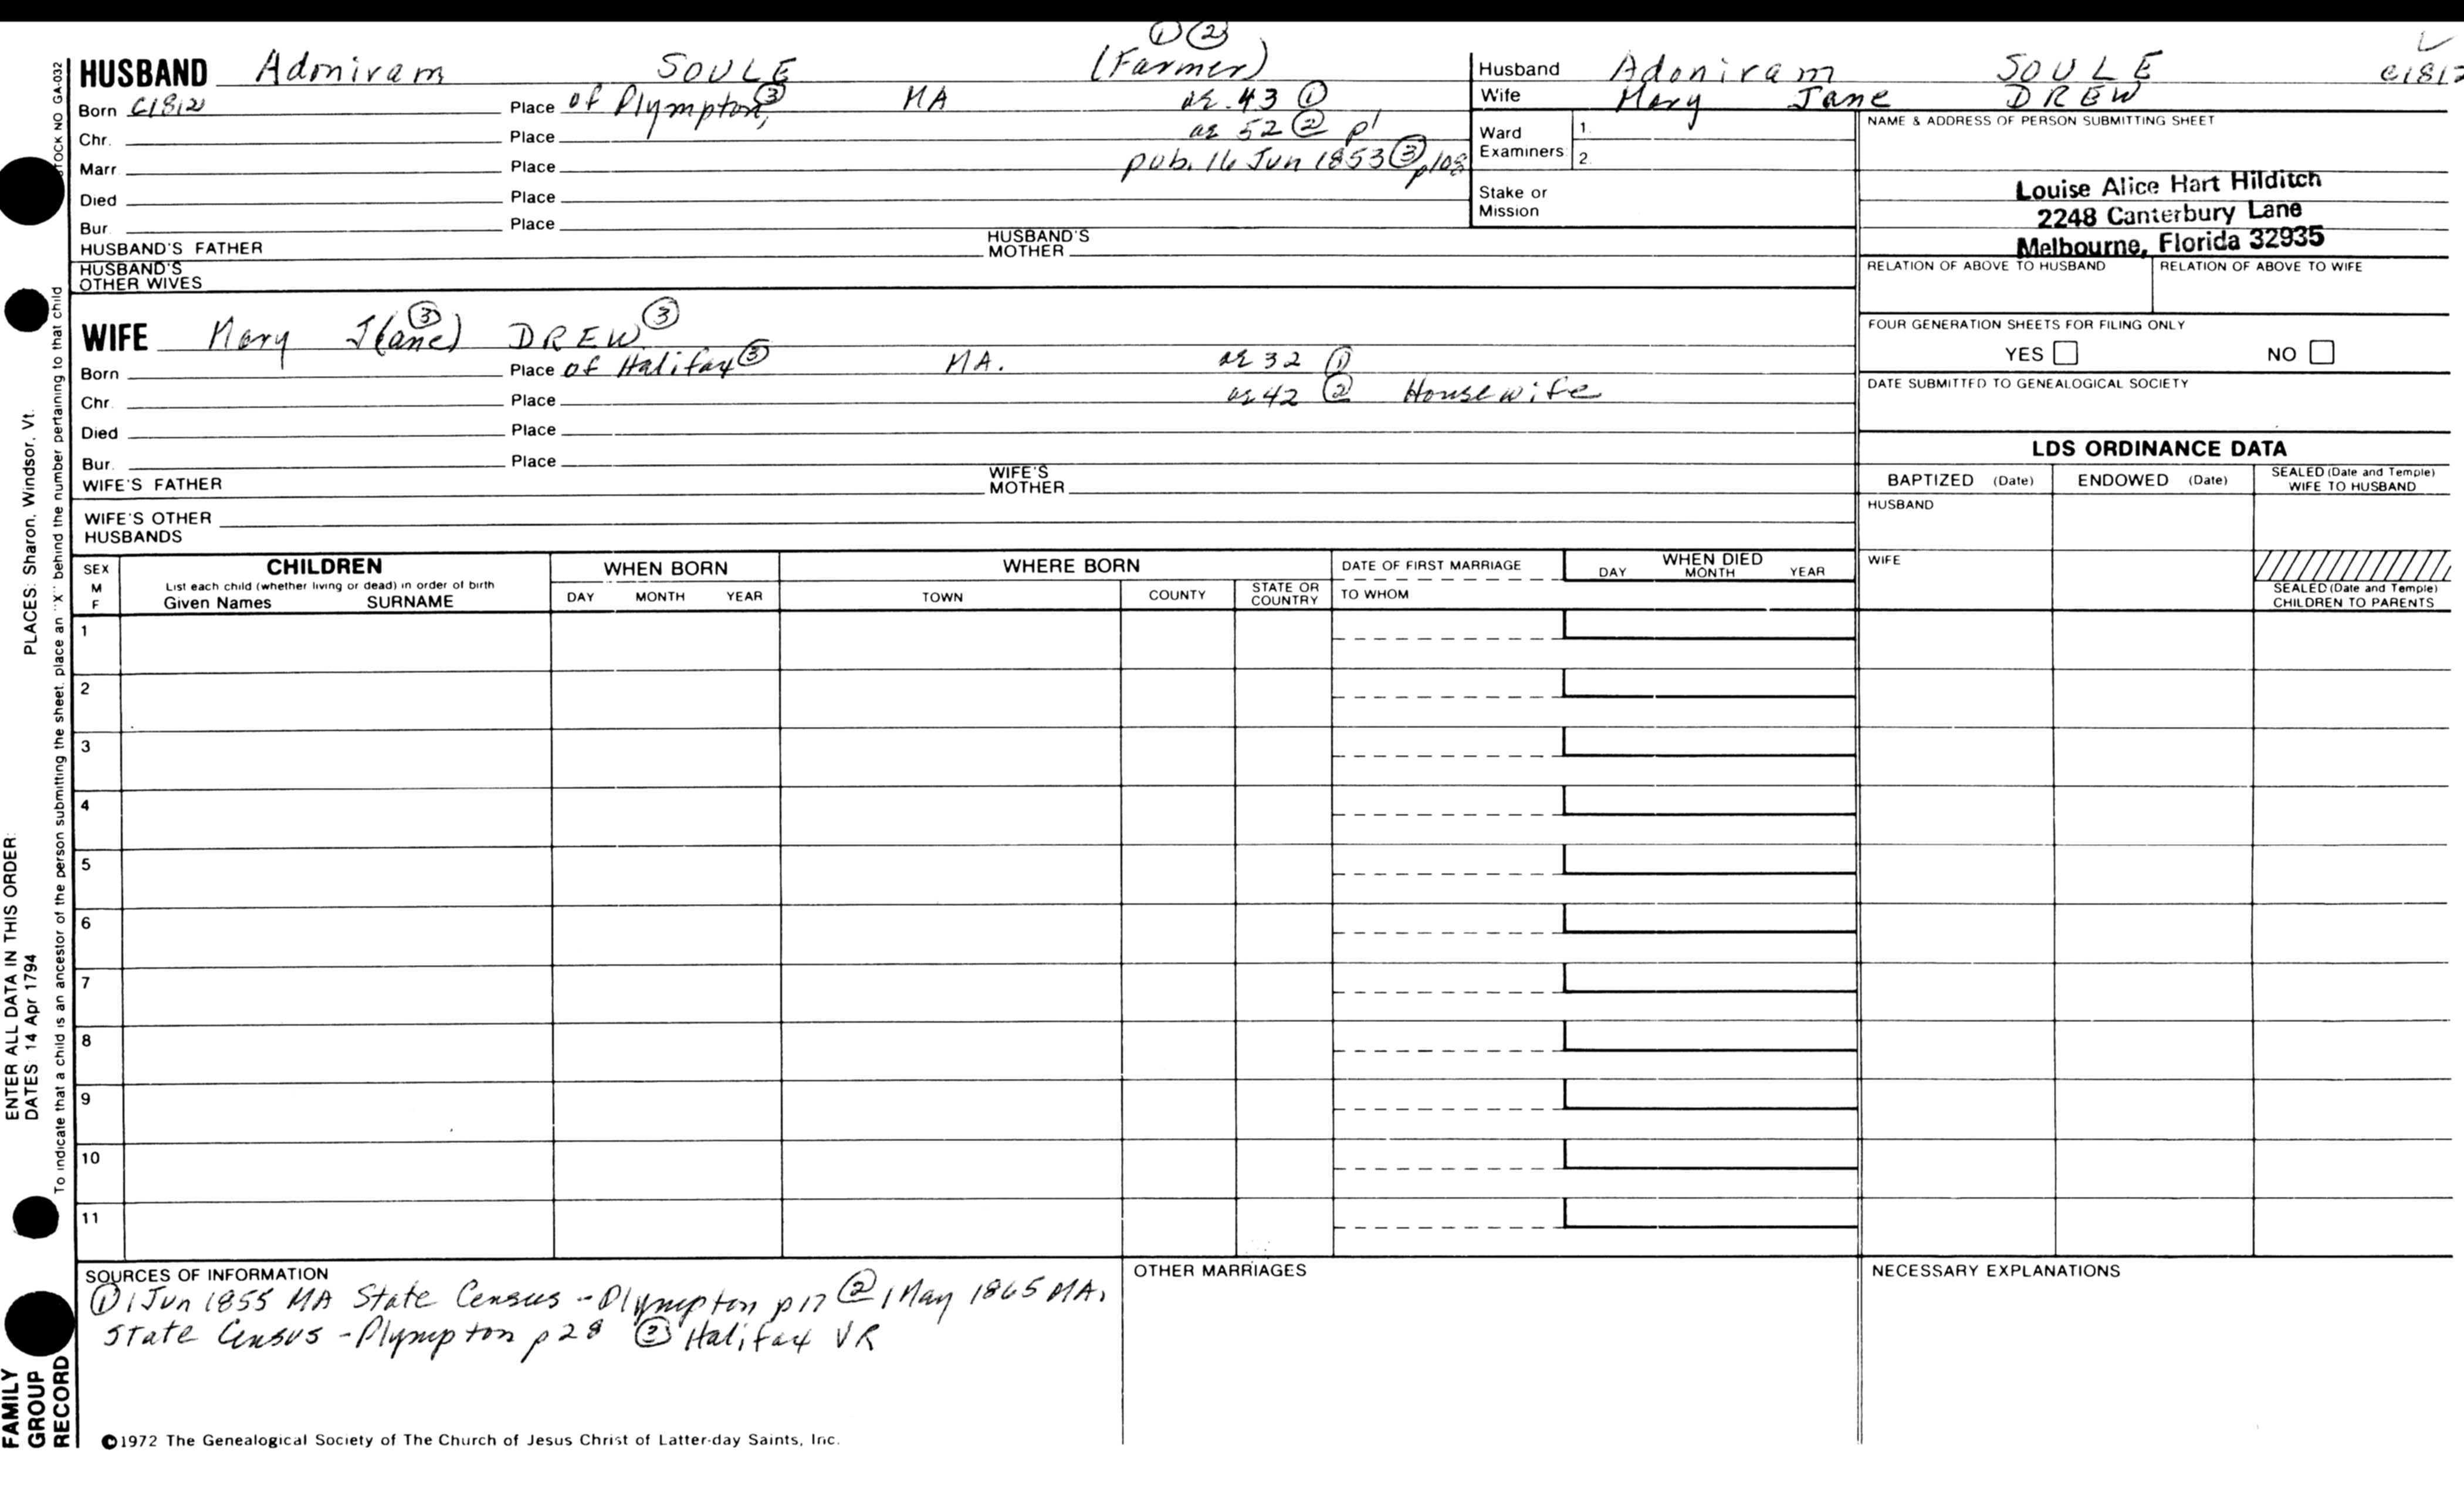 ① ②
HUSBAND Adoniram SOULE (Farmer)
Born c1812 Place of Plympton, ③ MA ae. 43 ①
Chr. Place ae 52 ② p1
Marr. Place pub. 16 Jun 1853 ③ p108
Died Place
Bur. Place
HUSBAND'S FATHER HUSBAND'S MOTHER
HUSBAND'S OTHER WIVES
WIFE Mary J(ane) ③ DREW ③
Born Place of Halifax ③ MA. ae 32 ①
Chr. Place ae 42 ② Housewife
Died Place
Bur. Place
WIFE'S FATHER WIFE'S MOTHER
WIFE'S OTHER HUSBANDS
Husband Adoniram SOULE c1812
Wife Mary Jane DREW
Ward Examiners 1. 2.
Stake or Mission
NAME & ADDRESS OF PERSON SUBMITTING SHEET
Louise Alice Hart Hilditch
2248 Canterbury Lane
Melbourne, Florida 32935
RELATION OF ABOVE TO HUSBAND RELATION OF ABOVE TO WIFE
FOUR GENERATION SHEETS FOR FILING ONLY
YES NO
DATE SUBMITTED TO GENEALOGICAL SOCIETY
LDS ORDINANCE DATA
BAPTIZED (Date) ENDOWED (Date) SEALED (Date and Temple) WIFE TO HUSBAND
HUSBAND
WIFE
SEALED (Date and Temple) CHILDREN TO PARENTS
SEX M F
CHILDREN
List each child (whether living or dead) in order of birth
Given Names SURNAME
WHEN BORN
DAY MONTH YEAR
WHERE BORN
TOWN COUNTY STATE OR COUNTRY
DATE OF FIRST MARRIAGE
TO WHOM
WHEN DIED
DAY MONTH YEAR
1
2
3
4
5
6
7
8
9
10
11
SOURCES OF INFORMATION
① 1 Jun 1855 MA State Census - Plympton p17 ② 1 May 1865 MA.
State Census - Plympton p28 ③ Halifax VR
OTHER MARRIAGES
NECESSARY EXPLANATIONS
©1972 The Genealogical Society of The Church of Jesus Christ of Latter-day Saints, Inc.
STOCK NO GA-032
To indicate that a child is an ancestor of the person submitting the sheet, place an "X" behind the number pertaining to that child
ENTER ALL DATA IN THIS ORDER:
DATES: 14 Apr 1794 PLACES: Sharon, Windsor, Vt.
FAMILY
GROUP
RECORD